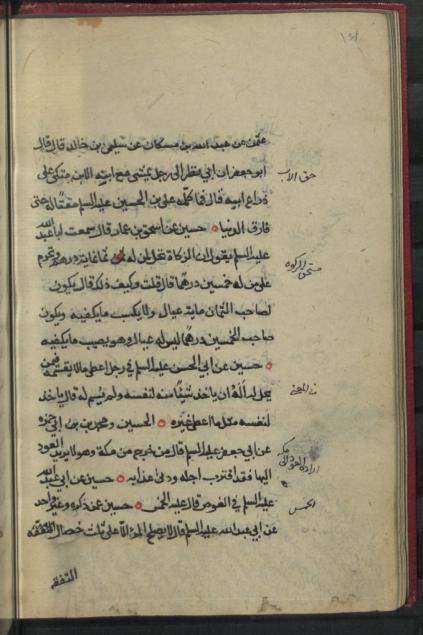 ١٤١
عثمن عن عبد الله بن مسكان عن سليمن بن خالد قال قال
ابو جعفر ان ابي نظر الى رجل يمشي مع ابيه الابن متكئ على
ذراع ابيه قال فما كلمه علي بن الحسين عليه السلم مقتا له حتى
فارق الدنيا حسين عن اسحق بن عمار قال سمعت ابا عبد الله
عليه السلم يقول ان الزكاة تحل لمن له ثمانماية درهم وتحرم
على من له خمسين درهما قال قلت وكيف ذلك قال يكون
لصاحب الثمان ماية عيال ولا يكسب ما يكفيه ويكون
صاحب الخمسين درهما ليس له عيال وهو يصيب ما يكفيه
حسين عن ابي الحسن عليه السلم في رجل اعطي مالا يقسمه فيمن
يحل له أله ان ياخذ شيئا منه لنفسه ولم يسم له قال ياخذ
لنفسه مثل ما اعطى غيره الحسين ومحمد بن ابي حمزة
عن ابي جعفر عليه السلم قال من خرج من مكة وهو لا يريد العود
اليها فقد اقترب اجله ودنى عذابه حسين عن ابي عبد الله
عليه السلم في الغوص قال عليه الخمس حسين عمن ذكره وغير واحد
عن ابي عبد الله عليه السلم قال لا يصلح المرء الا على ثلث خصال التفقه
التفقه
حق الاب
مستحق الزكوة
الخمس